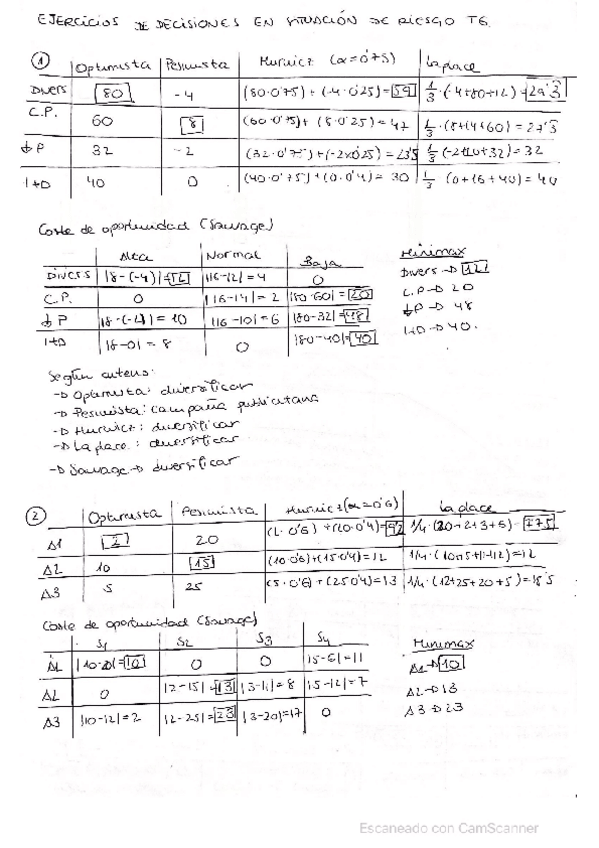 EJERCICIOS DE DECISIONES EN SITUACIÓN DE RIESGO T6.
① Optimista Pesimista Hurwicz (α=0'75) Laplace
Divers 80 -4 (80·0'75)+(-4·0'25)=59 1/3·(-4+80+12)=29'3
C.P. 60 8 (60·0'75)+(8·0'25)=47 1/3·(8+14+60)=27'3
↓P 32 -2 (32·0'75)+(-2×0'25)=23'5 1/3(-2+10+32)=32
I+D 40 0 (40·0'75)+(0·0'4)=30 1/3 (0+16+40)=40
Coste de oportunidad (Sauvage)
Alta Normal Baja Minimax
Divers |8-(-4)|=12 |16-12|=4 0 Divers→12
C.P. 0 |16-14|=2 |80-60|=20 C.P→20
↓P |8-(-2)|=10 |16-10|=6 |80-32|=48 ↓P→48
I+D |8-0|=8 0 |80-40|=40 I+D→40.
Según criterio:
→ Optimista: diversificar
→ Pesimista: campaña publicitaria
→ Hurwicz: diversificar
→ Laplace: diversificar
→ Sauvage→ diversificar
② Optimista Pesimista Hurwicz(α=0'6) Laplace
A1 2 20 (2·0'6)+(20·0'4)=9'2 1/4·(20+2+3+6)=7'75
A2 10 15 (10·0'6)+(15·0'4)=12 1/4·(10+15+11+12)=12
A3 5 25 (5·0'6)+(25·0'4)=13 1/4·(12+25+20+5)=15'5
Coste de oportunidad (Sauvage)
S1 S2 S3 S4 Minimax
A1 |10-20|=10 0 0 |5-6|=11 A1→10
A2 0 |2-15|=13 |3-11|=8 |5-12|=7 A2→13
A3 |10-12|=2 |2-25|=23 |3-20|=17 0 A3→23
Escaneado con CamScanner